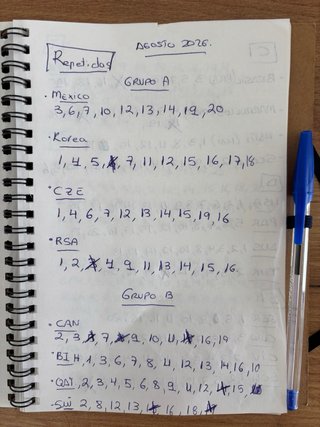 AGOSTO 2026.
Repetidos
GRUPO A
• MEXICO
3, 6, 7, 10, 12, 13, 14, 19, 20
• Korea
1, 4, 5, 7, 11, 12, 15, 16, 17, 18
• CZE
1, 4, 6, 7, 12, 13, 14, 15, 19, 16
• RSA
1, 2, 4, 9, 11, 13, 14, 15, 16.
GRUPO B
• CAN
2, 3, 7, 9, 10, 11, 16, 19
• BIH 1, 3, 6, 7, 8, 11, 12, 13, 14, 16, 10
• QAT, 2, 3, 4, 5, 6, 8, 9, 11, 12, 15,
• SUI 2, 8, 12, 13, 16, 18,